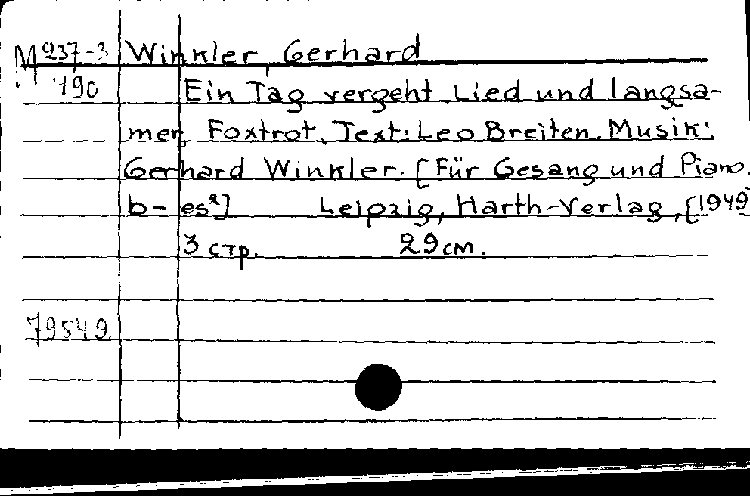 М 237-3 Winkler, Gerhard
190 Ein Tag vergeht. Lied und langsa-
mer Foxtrot. Text: Leo Breiten. Musik:
Gerhard Winkler. [Für Gesang und Piano.
b - es²] Leipzig, Harth-Verlag, [1949
3 стр. 29 см.
79549